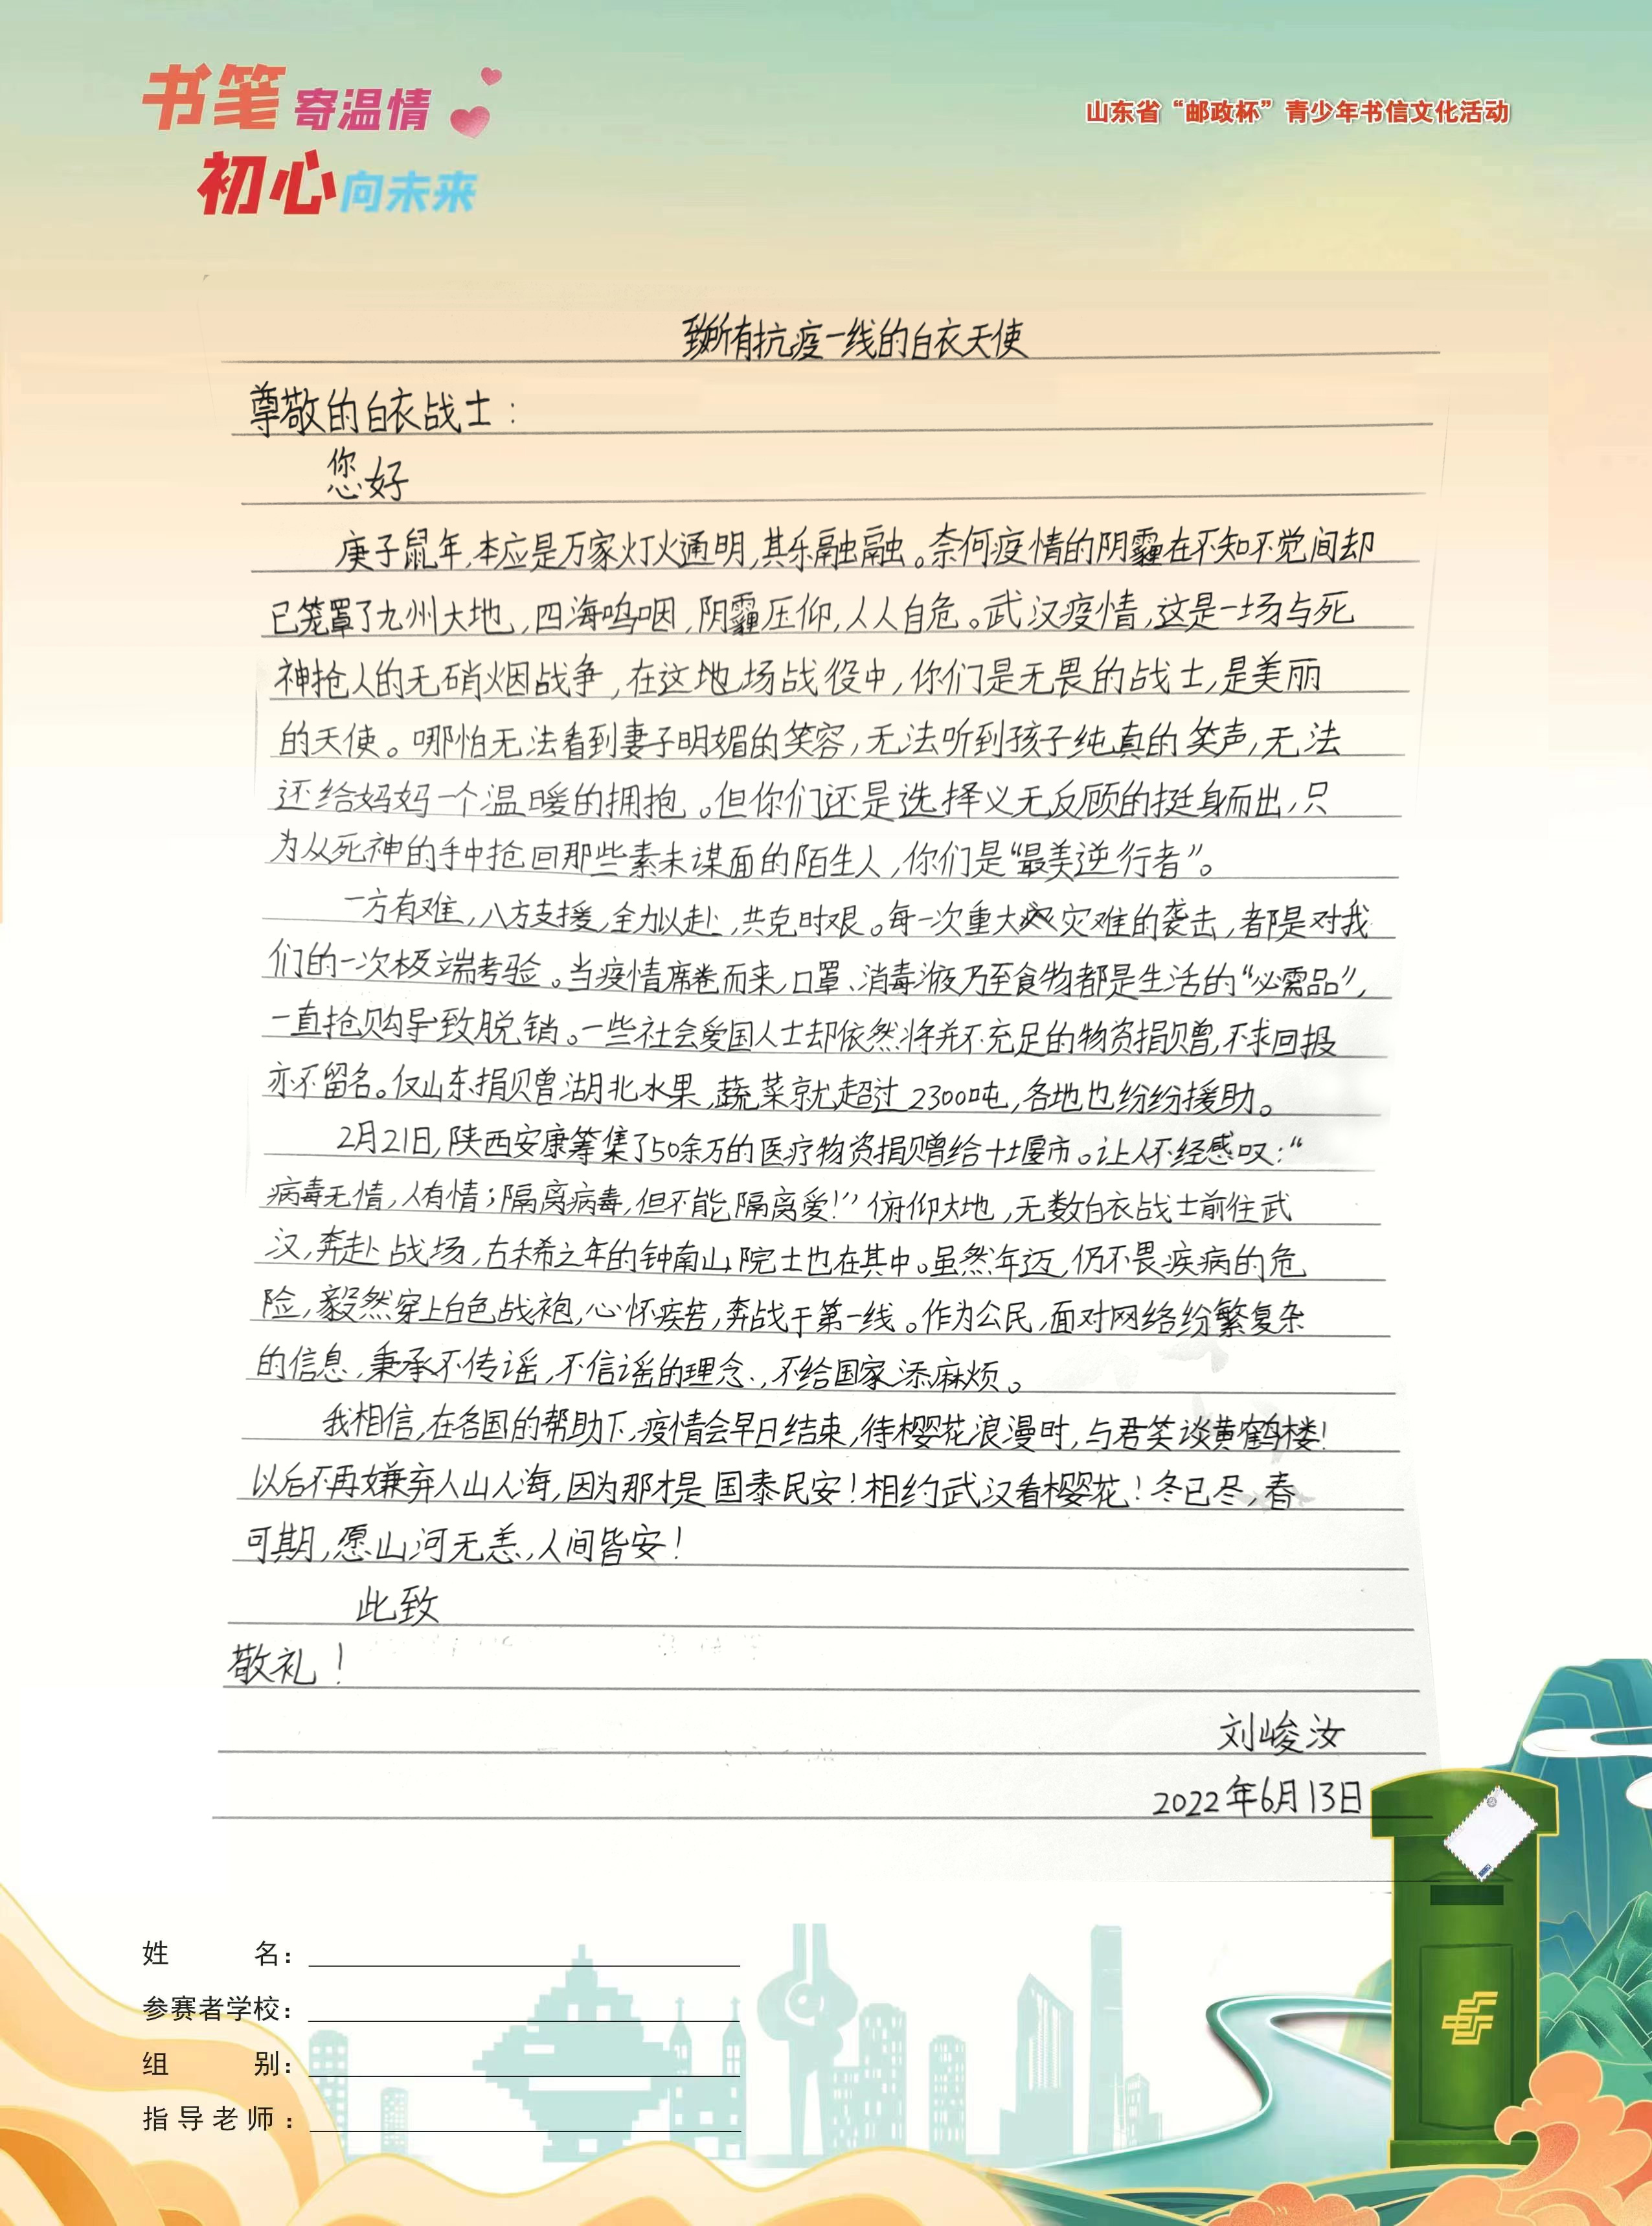 书笔寄温情
初心向未来
山东省“邮政杯”青少年书信文化活动
致所有抗疫一线的白衣天使
尊敬的白衣战士：
您好
庚子鼠年,本应是万家灯火通明,其乐融融。奈何疫情的阴霾在不知不觉间却
已笼罩了九州大地,四海呜咽,阴霾压仰,人人自危。武汉疫情,这是一场与死
神抢人的无硝烟战争,在这地场战役中,你们是无畏的战士,是美丽
的天使。哪怕无法看到妻子明媚的笑容,无法听到孩子纯真的笑声,无法
还给妈妈一个温暖的拥抱。但你们还是选择义无反顾的挺身而出,只
为从死神的手中抢回那些素未谋面的陌生人,你们是“最美逆行者”。
一方有难,八方支援,全力以赴,共克时艰。每一次重大灾难的袭击,都是对我
们的一次极端考验。当疫情席卷而来,口罩、消毒液乃至食物都是生活的“必需品”,
一直抢购导致脱销。一些社会爱国人士却依然将并不充足的物资捐赠,不求回报
亦不留名。仅山东捐赠湖北水果,蔬菜就超过2300吨,各地也纷纷援助。
2月21日,陕西安康筹集了50余万的医疗物资捐赠给十堰市。让人不经感叹:“
病毒无情,人有情;隔离病毒,但不能隔离爱!”俯仰大地,无数白衣战士前往武
汉,奔赴战场,古稀之年的钟南山院士也在其中。虽然年迈,仍不畏疾病的危
险,毅然穿上白色战袍,心怀疾苦,奔战于第一线。作为公民,面对网络纷繁复杂
的信息,秉承不传谣,不信谣的理念,不给国家添麻烦。
我相信,在各国的帮助下,疫情会早日结束,待樱花浪漫时,与君笑谈黄鹤楼!
以后不再嫌弃人山人海,因为那才是国泰民安!相约武汉看樱花!冬已尽,春
可期,愿山河无恙,人间皆安!
此致
敬礼!
刘峻汝
2022年6月13日
姓名：
参赛者学校：
组别：
指导老师：